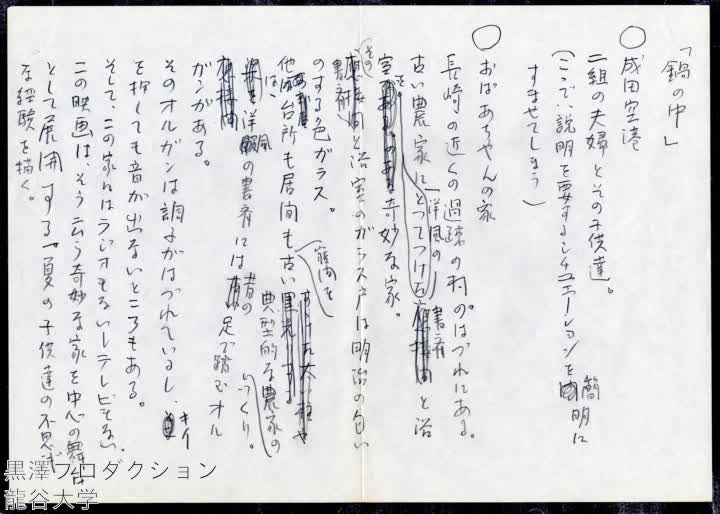 「鍋の中」
○成田空港
二組の夫婦とその子供達。
(ここで、説明を要するシチュエーションを簡明に
すませてしまう)
○おばあちゃんの家
長崎の近くの過疎の村のはづれにある。
古い農家にとってつけた洋風の書斎と浴
室を 奇妙な家。
その書斎と浴室のガラス戸は明治の匂い
のする色ガラス。
他は台所も居間も古い典型的な農家のつくり。
洋風の書斎には昔の足で踏むオル
ガンがある。
そのオルガンは調子がはづれているし、キイ
を押しても音が出ないところもある。
そして、この家にはラジオもないしテレビもない。
この映画は、そう云う奇妙な家を中心の舞台
として展開する一夏の子供達の不思議
な経験を描く。
黒澤プロダクション
龍谷大学